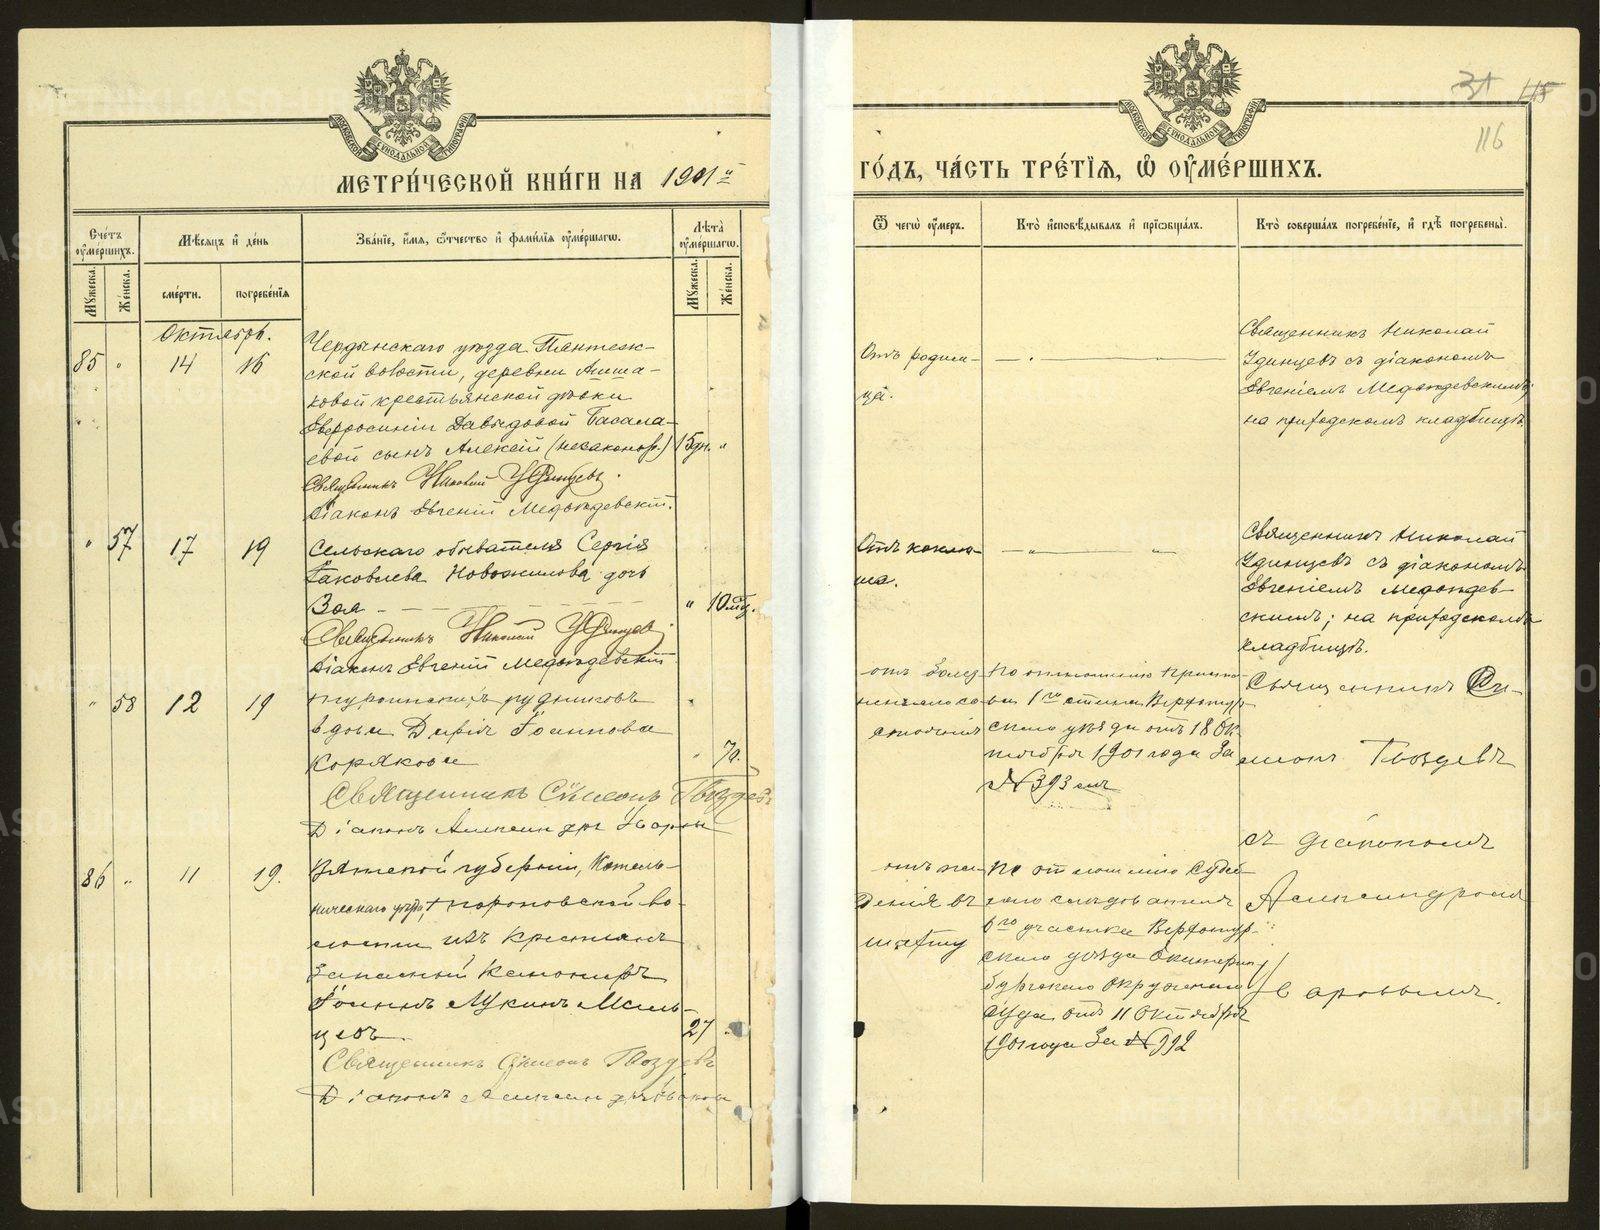 МЕТРИ́ЧЕСКОЙ КНИ́ГИ НА 1901 й
ГО́ДЪ, ЧА́СТЬ ТРЕ́ТЇѦ, Ѡ҆ ОУ҆МЕ́РШИХЪ.
31 115
116
МОСКОВСКОЙ СѴНОДАЛЬНОЙ ТИПОГРАФІИ
МОСКОВСКОЙ СѴНОДАЛЬНОЙ ТИПОГРАФІИ
Сче́тъ оу҆ме́ршихъ.
Мꙋ́жеска.
Же́нска.
Мѣ́сѧцъ и҆ де́нь
сме́рти.
погребе́нїѧ
Зва́нїе, и҆́мѧ, ѻ҆́тчество и҆ фами́лїѧ оу҆ме́ршагѡ.
Лѣ́та оу҆ме́ршагѡ.
Мꙋ́жеска.
Же́нска.
Ѿ чегѡ̀ оу҆́меръ.
Кто̀ и҆сповѣ́дывалъ и҆ прїѡбща́лъ.
Кто̀ соверша́лъ погребе́нїе, и҆ гдѣ̀ погребены̀.
Октябрь.
85 " 14 16
Чердынскаго уѣзда Пянтеж-
ской волости, деревни Аниша-
ковой крестьянской дѣвки
Евфросиніи Давыдовой Басала-
евой сынъ Алексѣй (незаконор.) 15 дн. "
Священникъ Николай Удинцевъ.
Діаконъ Евгеній Медвѣдевскій.
Отъ родим-
ца.
— " — " —
Священникъ Николай
Удинцевъ съ діакономъ
Евгеніемъ Медвѣдевскимъ;
на приходскомъ кладбищѣ.
" 57 17 19
Сельскаго обывателя Сергія
Іаковлева Новожилова дочь
Зоя — " 10 мѣц.
Священникъ Николай Удинцевъ
Діаконъ Евгеній Медвѣдевскій
Отъ коклю-
ша.
— " — " —
Священникъ Николай
Удинцевъ съ діакономъ
Евгеніемъ Медвѣдев-
скимъ; на приходскомъ
кладбищѣ.
" 58 12 19
Туринскихъ рудниковъ
вдова Дарія Іоаннова
Корякова " 70.
Священникъ Сѵмеонъ Гвоздевъ
Діаконъ Александръ
отъ болѣз-
неннаго со-
стоянія
По отношенію приста-
ва 1го стана Верхотур-
скаго уѣзда отъ 18 Ок-
тября 1901 года за
№ 393 емъ
Священникъ Си-
меонъ Гвоздевъ
съ діакономъ
Александромъ
86 " 11 19.
Вятской губерніи, Котель-
ническаго уѣзда, во-
лости изъ крестьянъ
запасный канониръ
Іоаннъ Лукинъ Мель-
цовъ. 27 "
Священникъ Сѵмеонъ Гвоздевъ
Діаконъ Александръ
отъ па-
денія въ
шахту
По отношенію Судеб-
наго слѣдователя
6го участка Верхотур-
скаго уѣзда Екатерин-
бургскаго Окружнаго
Суда отъ 11 Октября
1901 года за № 992